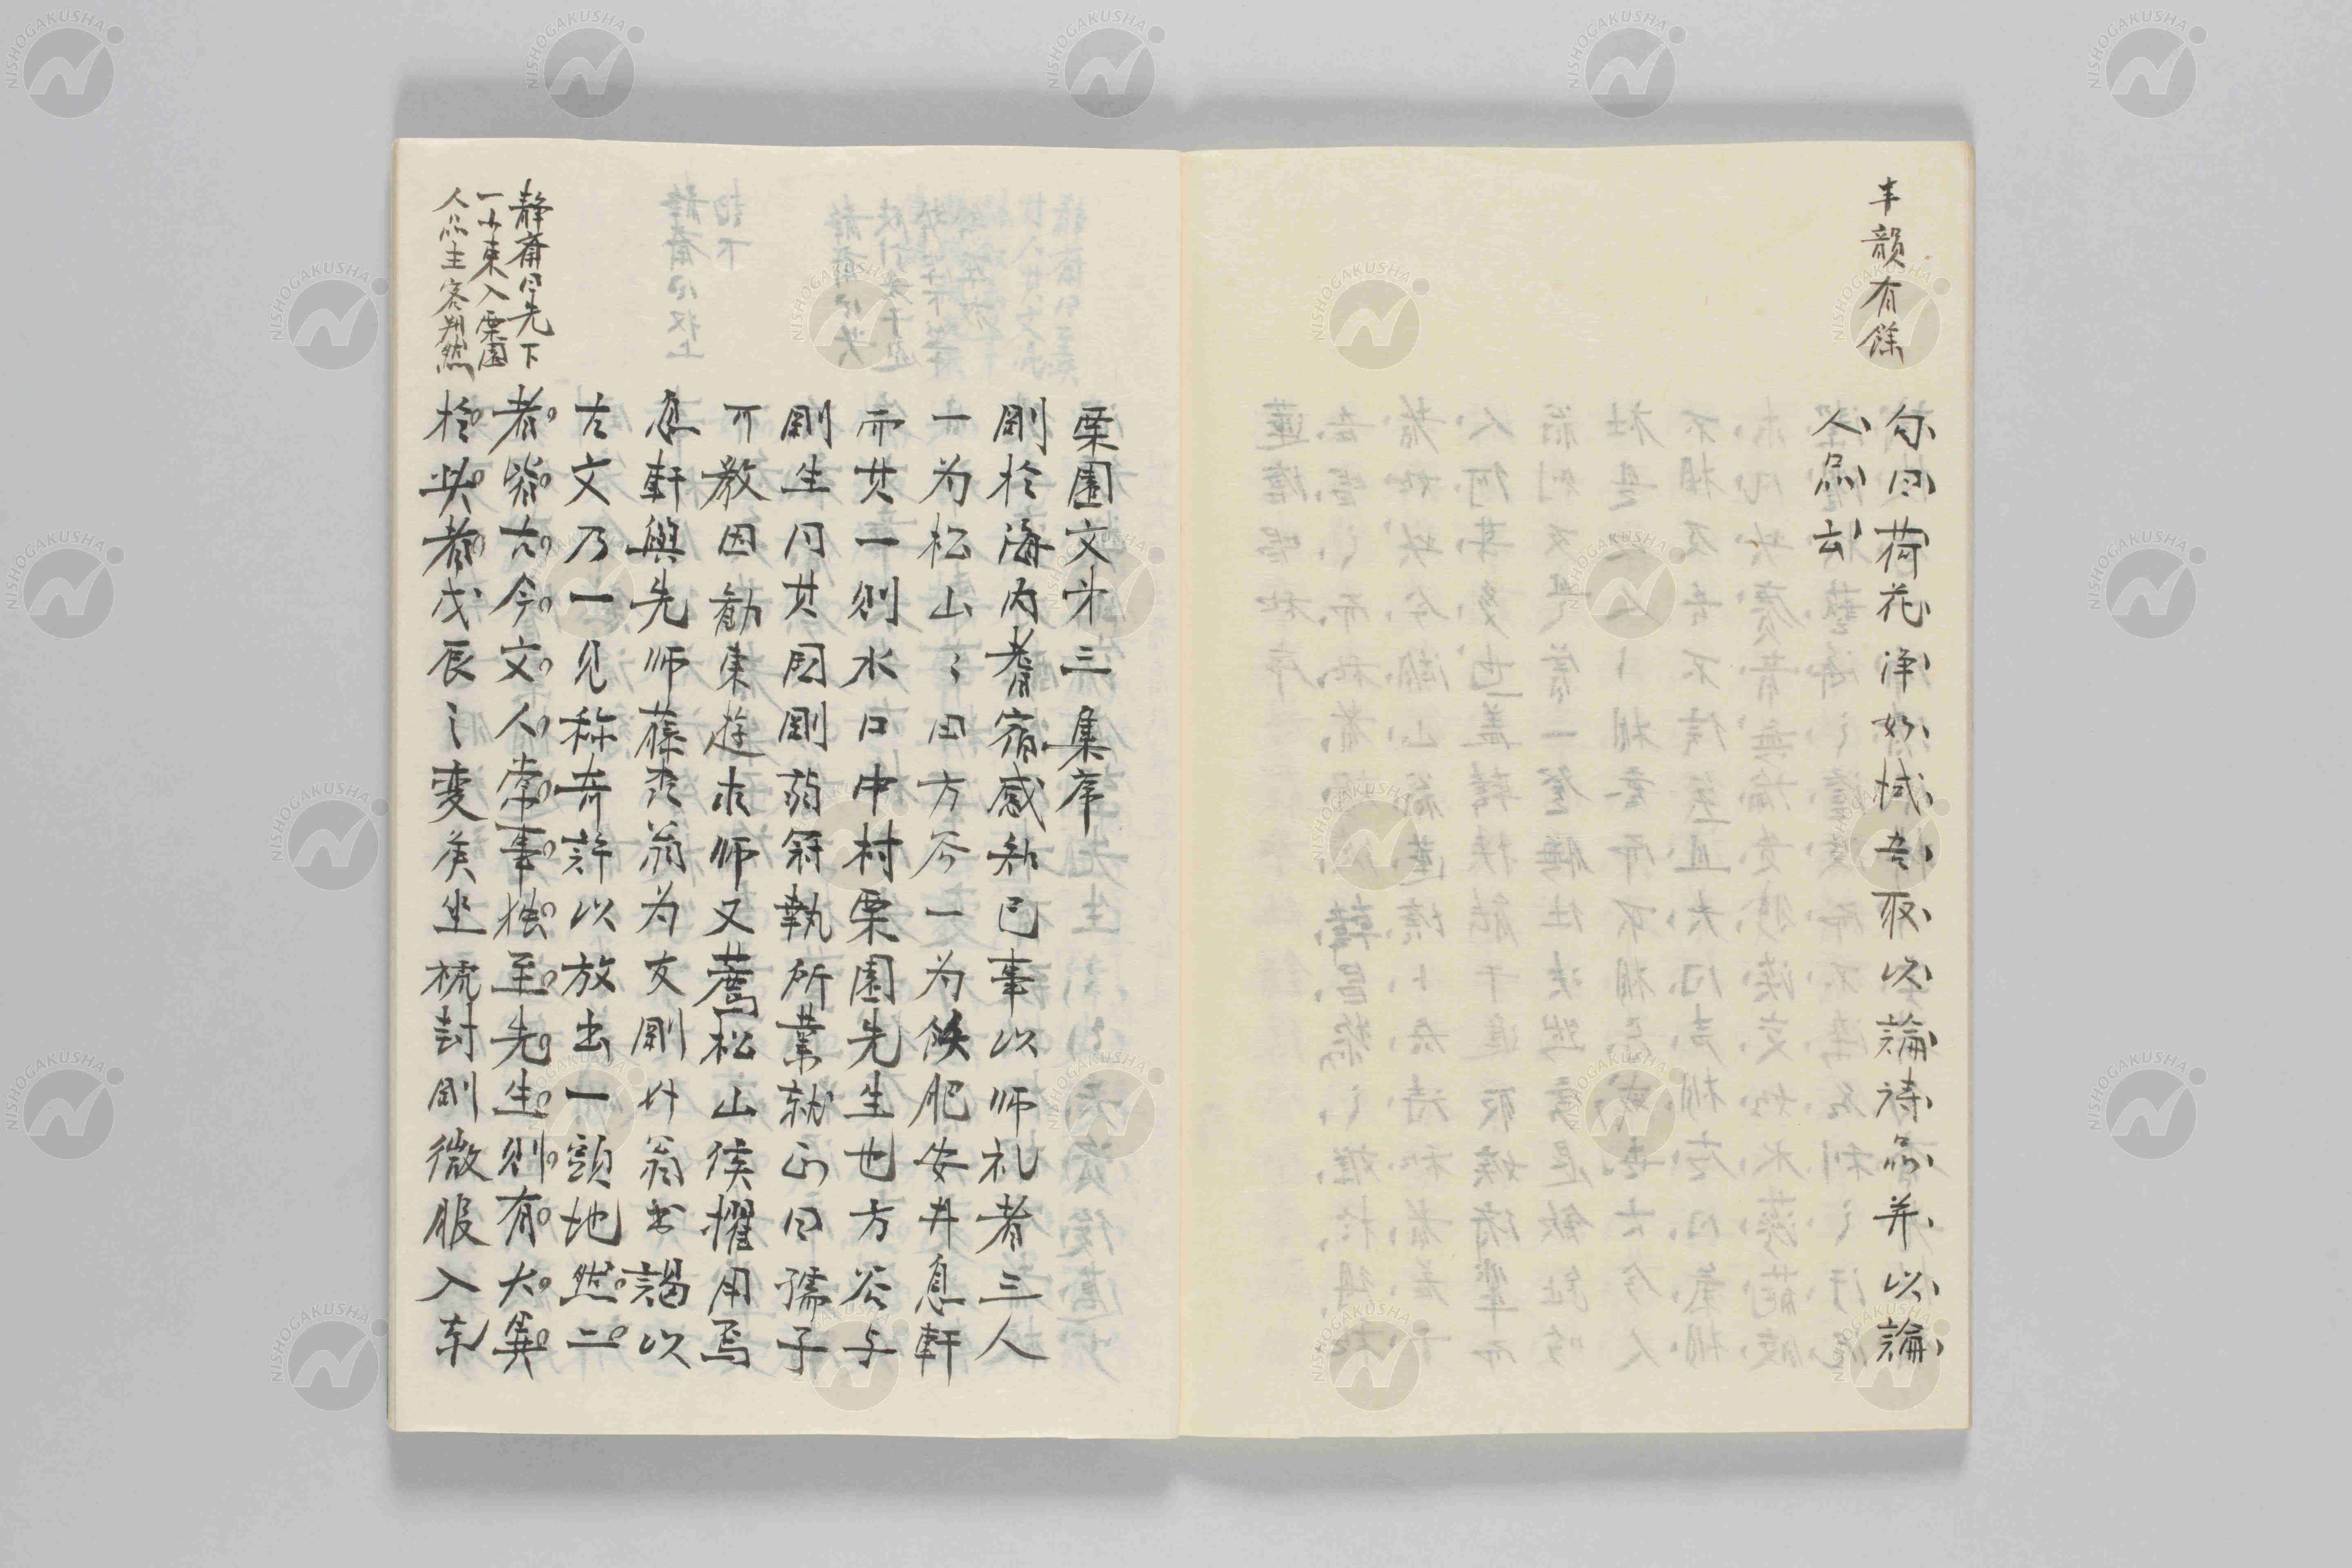 丰韻有餘
句曰荷花浄如拭吾取以論詩品并以論
人品云
栗園文㐧三集序
剛於海内耆宿感知己事以师礼者三人
一为松山〻田方谷一为飫肥安井息軒
而其一则水口中村栗園先生也方谷与
剛生同其国剛弱冠執所業就正曰孺子
可教因勧東遊求师又薦松山侯擢用焉
息軒與先师藤森翁为友剛介翁書謁以
古文乃一見称奇許以放出一頭地然二
者皆古今文人常事独至先生则有大異
於此者戊辰之变矦坐梳封剛微服入京
静斎曰先下
一小束入栗園
人品主客判然
NISHOGAKUSHA